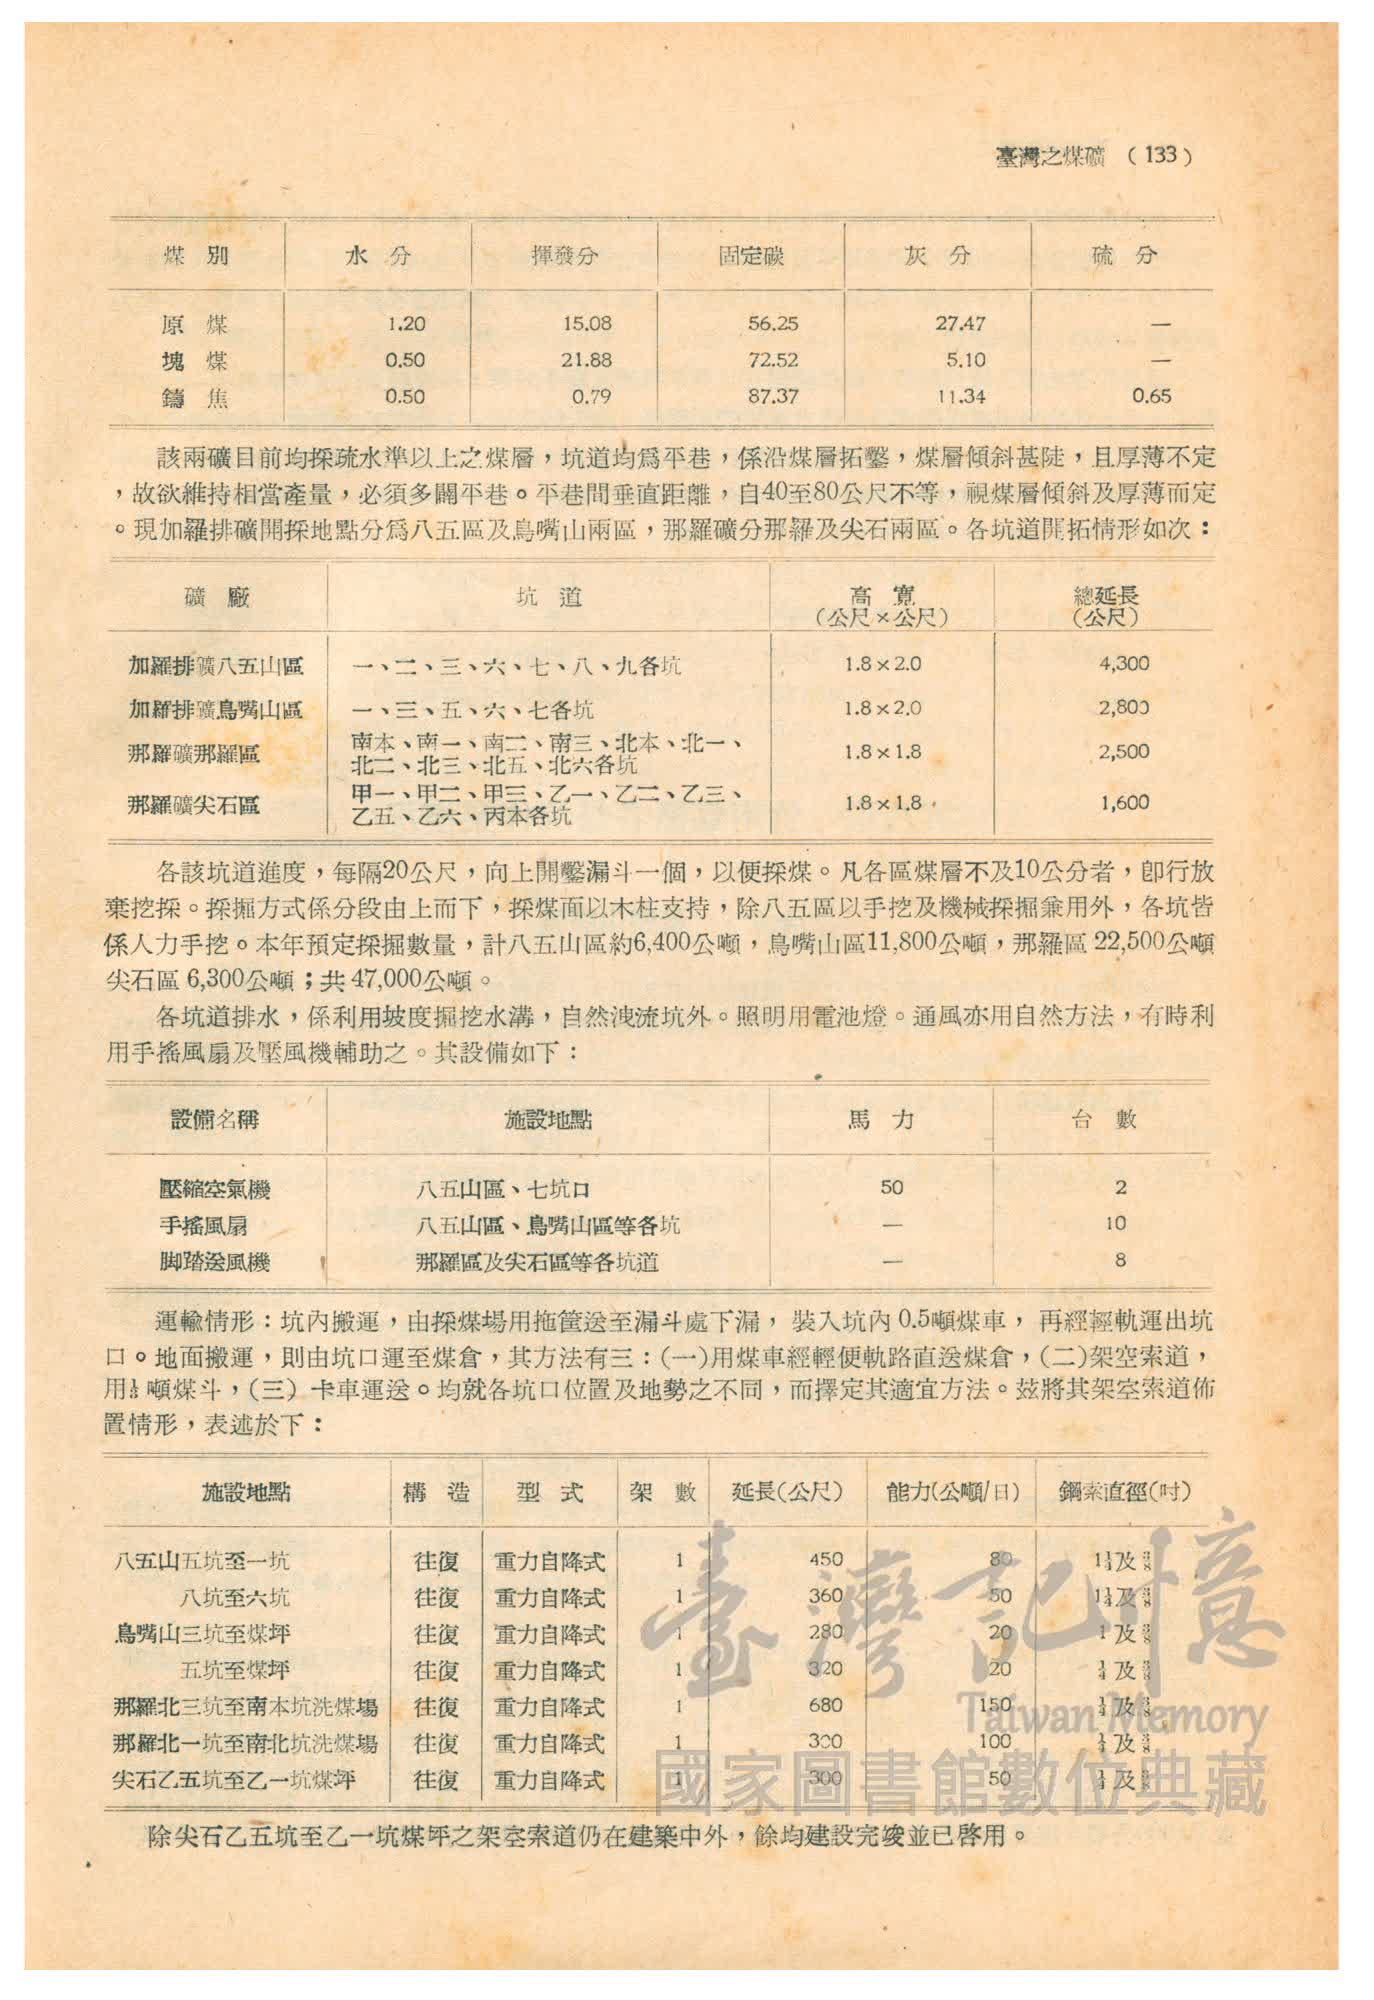 臺灣之煤礦 (133)
煤別 水分 揮發分 固定碳 灰分 硫分
原煤 1.20 15.08 56.25 27.47 —
塊煤 0.50 21.88 72.52 5.10 —
鑄焦 0.50 0.79 87.37 11.34 0.65
該兩礦目前均採疏水準以上之煤層，坑道均爲平巷，係沿煤層拓鑿，煤層傾斜甚陡，且厚薄不定
，故欲維持相當產量，必須多闢平巷。平巷間垂直距離，自40至80公尺不等，視煤層傾斜及厚薄而定
。現加羅排礦開採地點分爲八五區及鳥嘴山兩區，那羅礦分那羅及尖石兩區。各坑道開拓情形如次：
礦廠 坑道 高寬 總延長
(公尺×公尺) (公尺)
加羅排礦八五山區 一、二、三、六、七、八、九各坑 1.8×2.0 4,300
加羅排礦鳥嘴山區 一、三、五、六、七各坑 1.8×2.0 2,800
那羅礦那羅區 南本、南一、南二、南三、北本、北一、 1.8×1.8 2,500
北二、北三、北五、北六各坑
那羅礦尖石區 甲一、甲二、甲三、乙一、乙二、乙三、 1.8×1.8 1,600
乙五、乙六、丙本各坑
各該坑道進度，每隔20公尺，向上開鑿漏斗一個，以便採煤。凡各區煤層不及10公分者，卽行放
棄挖採。採掘方式係分段由上而下，採煤面以木柱支持，除八五區以手挖及機械採掘兼用外，各坑皆
係人力手挖。本年預定採掘數量，計八五山區約6,400公噸，鳥嘴山區11,800公噸，那羅區 22,500公噸
尖石區 6,300公噸；共 47,000公噸。
各坑道排水，係利用坡度掘挖水溝，自然洩流坑外。照明用電池燈。通風亦用自然方法，有時利
用手搖風扇及壓風機輔助之。其設備如下：
設備名稱 施設地點 馬力 台數
壓縮空氣機 八五山區、七坑口 50 2
手搖風扇 八五山區、鳥嘴山區等各坑 — 10
脚踏送風機 那羅區及尖石區等各坑道 — 8
運輸情形：坑內搬運，由採煤場用拖筐送至漏斗處下漏，裝入坑內 0.5噸煤車，再經輕軌運出坑
口。地面搬運，則由坑口運至煤倉，其方法有三：(一)用煤車經輕便軌路直送煤倉，(二)架空索道，
用噸煤斗，(三) 卡車運送。均就各坑口位置及地勢之不同，而擇定其適宜方法。茲將其架空索道佈
置情形，表述於下：
施設地點 構造 型式 架數 延長(公尺) 能力(公噸/日) 鋼索直徑(吋)
八五山五坑至一坑 往復 重力自降式 1 450 80 1¼及⅜
八坑至六坑 往復 重力自降式 1 360 50 1¼及⅜
鳥嘴山三坑至煤坪 往復 重力自降式 1 280 20 1及⅜
五坑至煤坪 往復 重力自降式 1 320 20 及⅜
那羅北三坑至南本坑洗煤場 往復 重力自降式 1 680 150 及⅜
那羅北一坑至南北坑洗煤場 往復 重力自降式 1 300 100 及⅜
尖石乙五坑至乙一坑煤坪 往復 重力自降式 1 300 50 及⅜
除尖石乙五坑至乙一坑煤坪之架空索道仍在建築中外，餘均建設完竣並已啓用。
臺灣記憶
Taiwan Memory
國家圖書館數位典藏